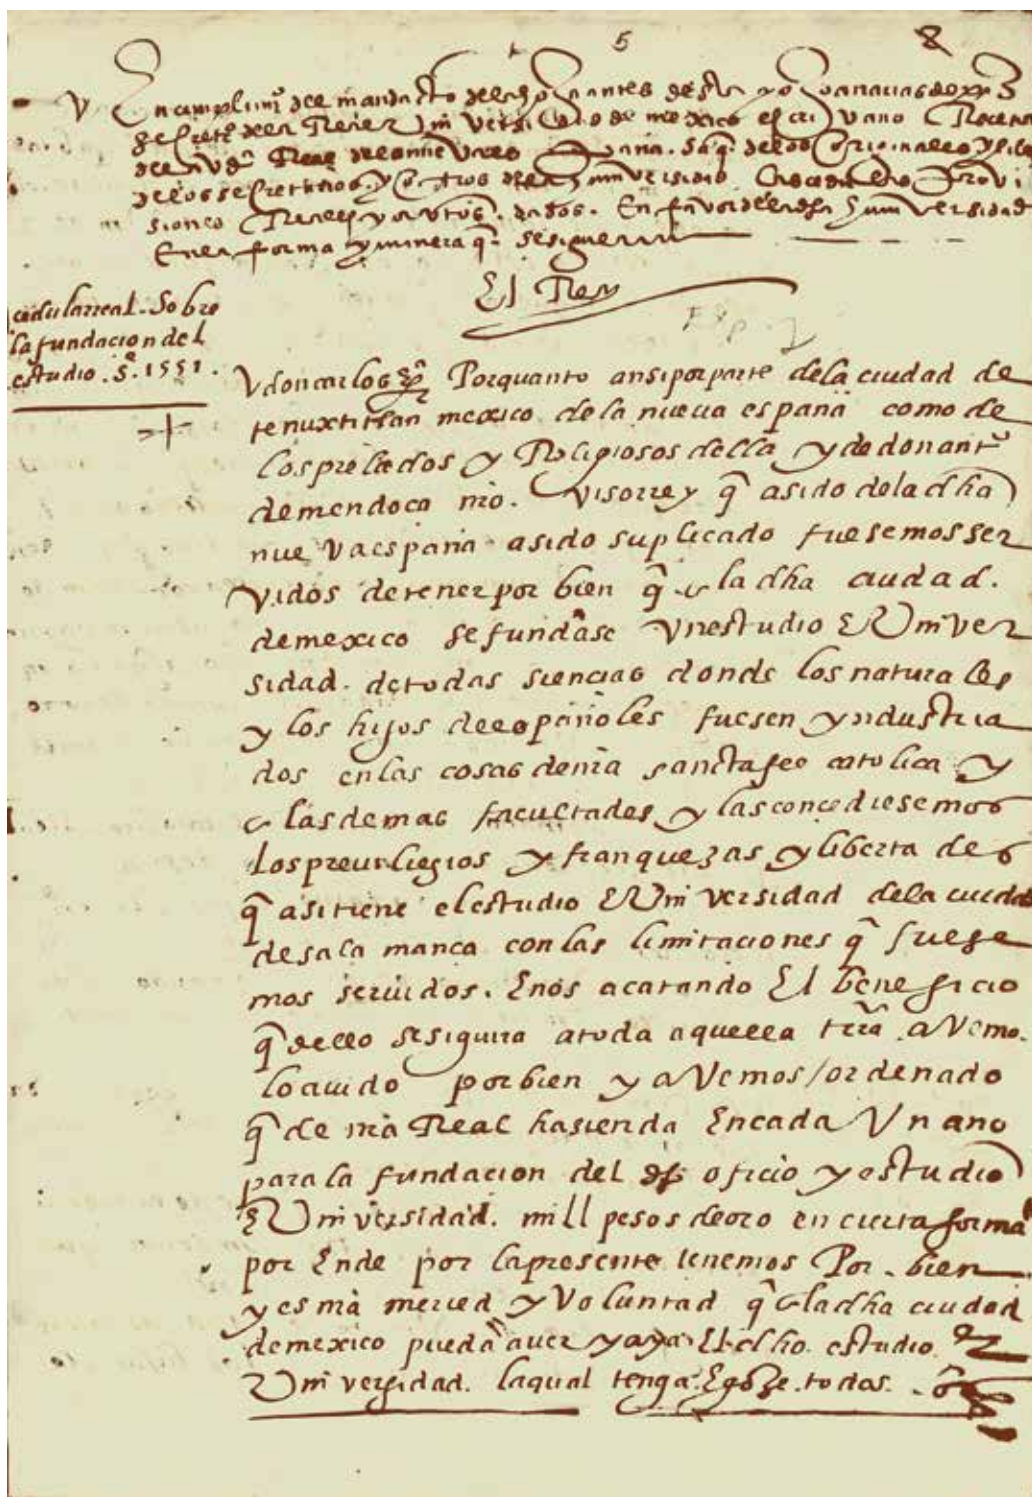 5 8
En cumplimiº del mandaStº de antes desta yo Joan
secretº dela Real Universidad de mexico escrivano Real
del Audª Real de la nueva españa. delos originales
delos secretarios y dela universidad
siones Reales y autos. dados. En favor de la dha universidad
En la forma y manera q̃ se siguen
El Rey
cedula rreal. Sobre
la fundacion del
estudio. Sᵉ. 1551.
V don carlos &ª Porquanto ansi por parte dela ciudad de
tenuxtitlan mexico dela nueva españa como de
los prelados y Religiosos della y de don antº
de mendoca nro. Visorrey q̃ a sido dela dha
nueva españa a sido suplicado fuesemos ser
vidos de tener por bien q̃ e la dha ciudad.
de mexico se fundase Un estudio E Univer
sidad. de todas siencias donde los naturales
y los hijos de españoles fuesen yndustria
dos en las cosas de nra sancta fee catolica y
e las demas facultades y las concediesemos
los previlegios y franquezas y libertades
q̃ asi tiene el estudio E Universidad dela ciudad
de salamanca con las limitaciones q̃ fuese
mos servidos. E nos acatando El beneficio
q̃ dello se siguira a toda aquella trra aVemo.
lo avido por bien y aVemos/ordenado
q̃ de nra Real hasienda En cada Un ano
para la fundacion del oficio y estudio
E Universidad. mill pesos de oro en cierta forma
por Ende por la presente tenemos Por. bien
y es nra merced y Voluntad q̃ e la dha ciudad
de mexico pueda aver y aya El dho estudio E
Universidad. la qual tenga. E goze. todas.